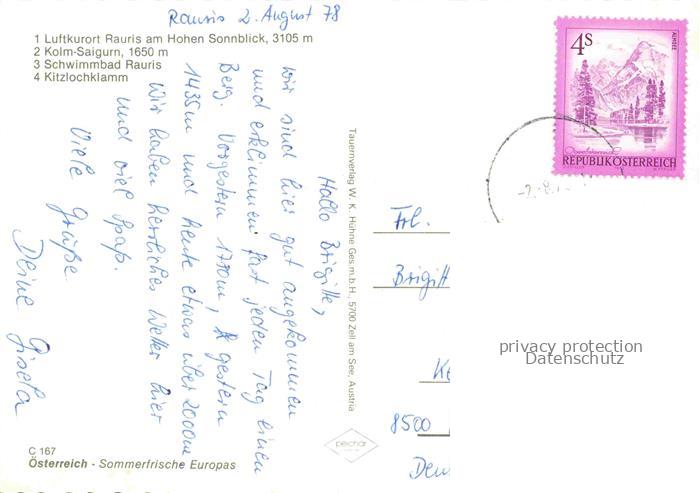 Rauris 2. August 78
1 Luftkurort Rauris am Hohen Sonnblick, 3105 m
2 Kolm-Saigurn, 1650 m
3 Schwimmbad Rauris
4 Kitzlochklamm
Hallo Brigitte,
wir sind hier gut angekommen
und erklimmen fast jeden Tag einen
Berg. Vorgestern 1780m, gestern
1435m und heute etwas über 2000m
Wir haben herrliches Wetter hier
und viel Spaß.
Viele Grüße
Deine Gisela
C 167
Österreich - Sommerfrische Europas
Tauernverlag W. K. Hühne Ges.m.b.H., 5700 Zell am See, Austria
peichar
4S
ALMSEE
REPUBLIK ÖSTERREICH
Frl.
Brigitt
8500
privacy protection
Datenschutz